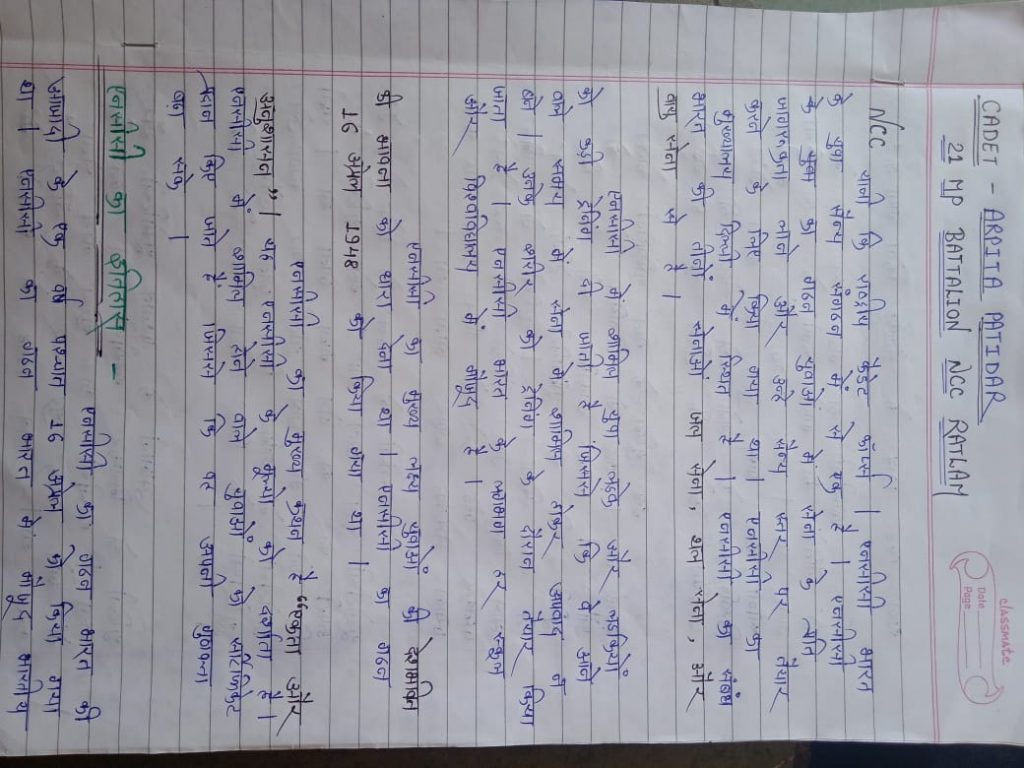 classmate
Date
Page
CADET - ARPITA PATIDAR
21 MP BATTALION NCC RATLAM
NCC यानी कि राष्ट्रीय कैडेट कॉर्प्स। एनसीसी भारत
के युवा सैन्य संगठन में से एक है। एनसीसी
के मुख्य का गठन युवाओ में सेना के प्रति
जागरूकता लाने और उन्हें सैन्य स्तर पर तैयार
करने के लिए किया गया था। एनसीसी का
मुख्यालय दिल्ली में स्थित है। एनसीसी का संबंध
भारत की तीनों सेनाओं जल सेना, थल सेना, और
वायु सेना से है।
एनसीसी में शामिल युवा लड़के और लड़कियों
को कड़ी ट्रेनिंग दी जाती है जिससे कि वे आने
वाले समय में सेना में शामिल होकर अपवाद न
हो। उनके शरीर को ट्रेनिंग के दौरान तैयार किया
जाता है। एनसीसी भारत के लगभग हर स्कूल
और विश्वविद्यालय में मौजूद है।
एनसीसी का मुख्य लक्ष्य युवाओं की देशभक्ति
की भावना को धारा देना था। एनसीसी का गठन
16 अप्रैल 1948 को किया गया था।
एनसीसी का मुख्य कथन है "एकता और
अनुशासन"। यह एनसीसी के मूल्यो को दर्शाता है।
एनसीसी में शामिल होने वाले युवाओं को सर्टिफिकेट
प्रदान किए जाते है जिससे कि वह अपनी गुणवत्ता
बढ़ा सके।
एनसीसी का इतिहास -
एनसीसी का गठन भारत की
आजादी के एक वर्ष पश्चात 16 अप्रैल को किया गया
था। एनसीसी का गठन भारत में मौजूद भारतीय